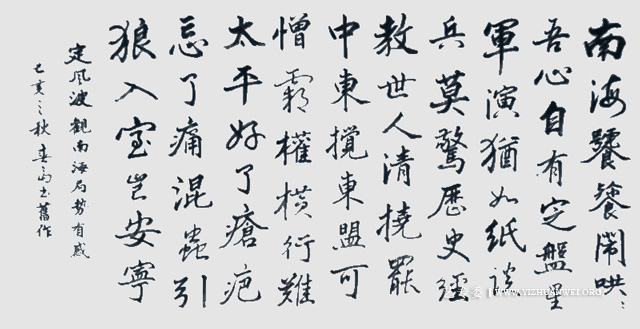 南海饕餮鬧哄〻
吾心自有定盤星
軍演猶如紙談
兵莫驚歷史經
教世人清撓罷
中東攪東盟可
憎霸權橫行難
太平好了瘡疤
忘了痛混蟲引
狼入室豈安寧
定風波 觀南海局勢有感
己亥之秋 書舊作
WWW.YIZHUANWEI.ORG